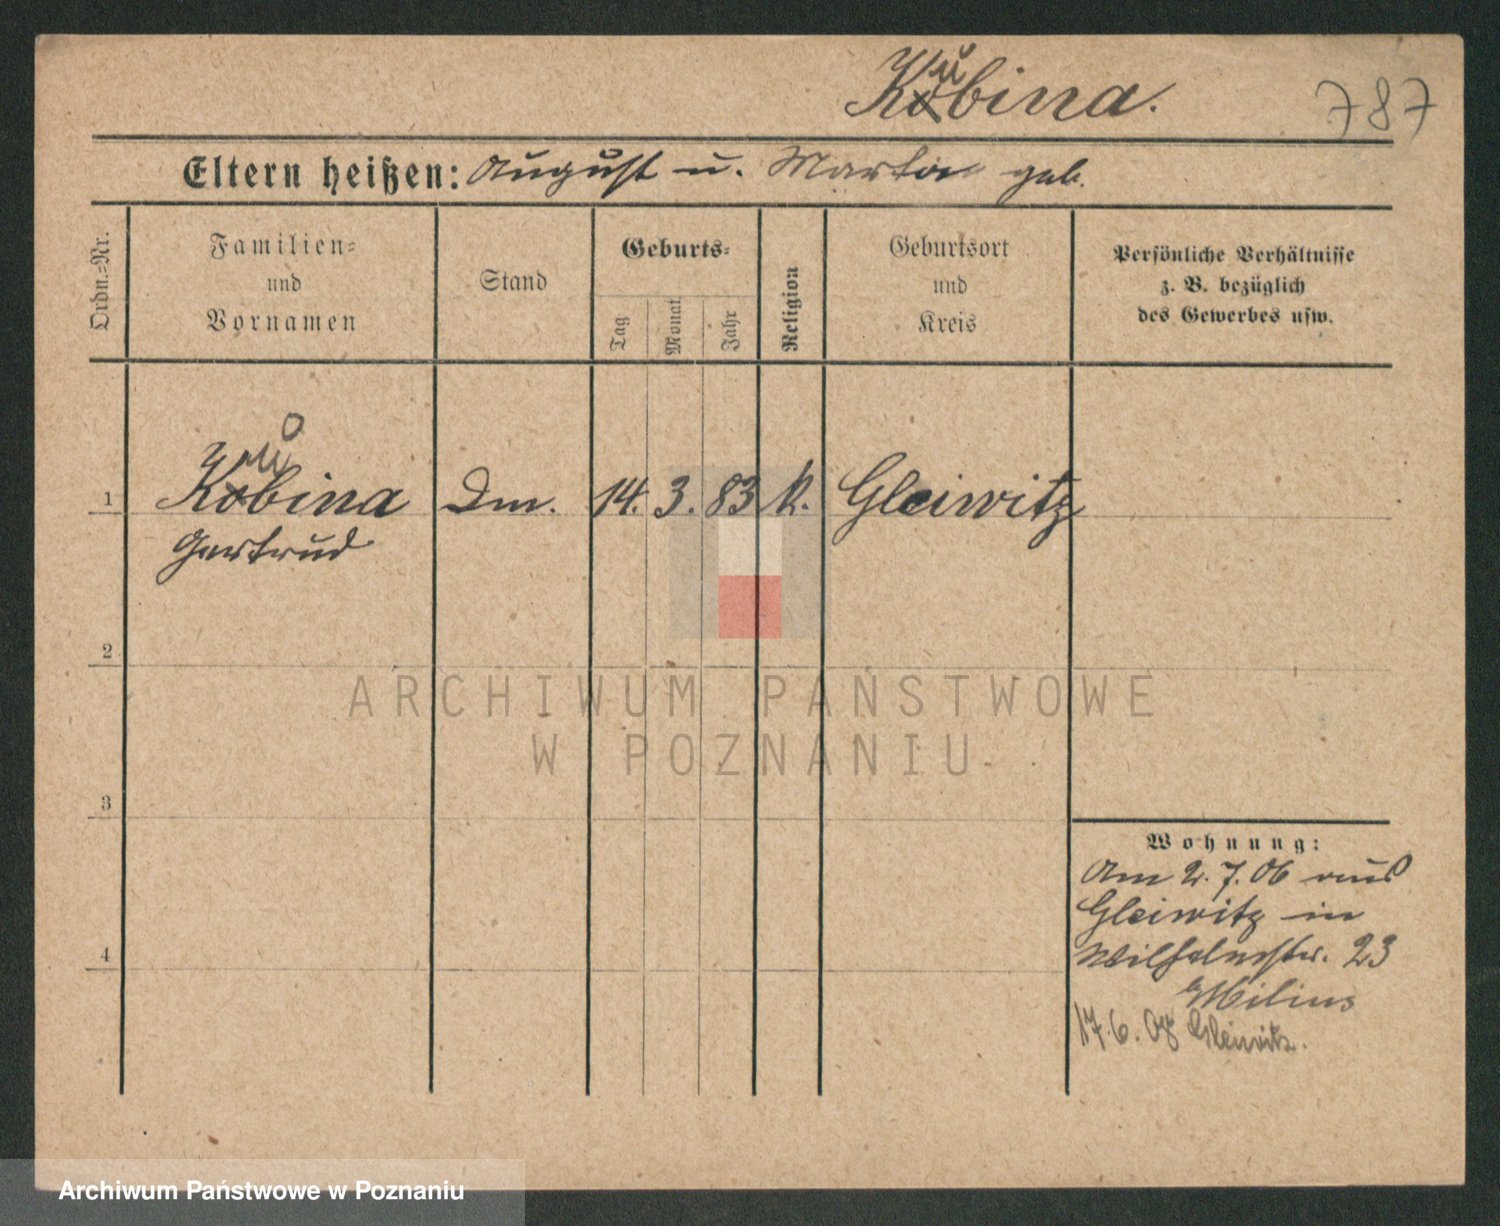 Kubina.
787
Eltern heißen: August u. Martha geb.
Ordn.-Nr.
Familien-
und
Vornamen
Stand
Geburts-
Tag
Monat
Jahr
Religion
Geburtsort
und
Kreis
Persönliche Verhältnisse
z. B. bezüglich
des Gewerbes usw.
1 Kubina Dm. 14. 3. 83 k. Gleiwitz
Gertrud
2
ARCHIWUM PAŃSTWOWE
W POZNANIU
3
Wohnung:
Am 2.7.06 aus
Gleiwitz in
Wilhelmstr. 23
4
Milius
17.6.08 Gleiwitz.
Archiwum Państwowe w Poznaniu